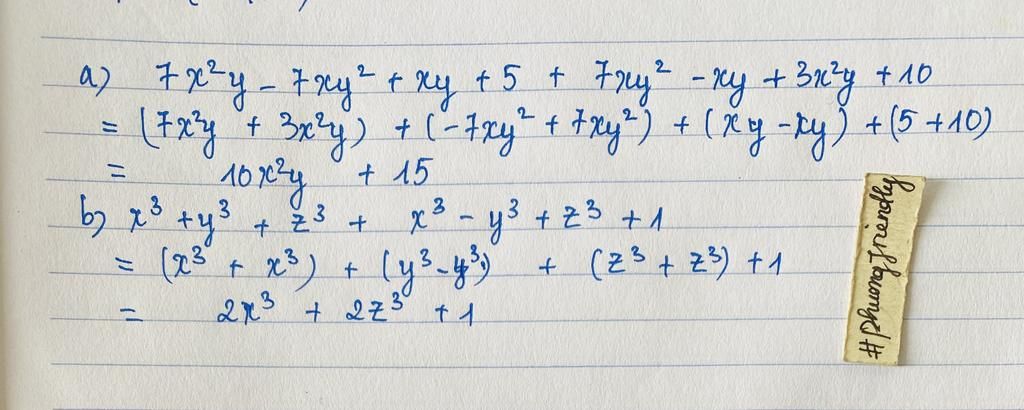 a) 7x²y - 7xy² + xy + 5 + 7xy² - xy + 3x²y + 10
= (7x²y + 3x²y) + (-7xy² + 7xy²) + (xy - xy) + (5 + 10)
= 10x²y + 15
b) x³ + y³ + z³ + x³ - y³ + z³ + 1
= (x³ + x³) + (y³ - y³) + (z³ + z³) + 1
= 2x³ + 2z³ + 1
#phuongfriendly